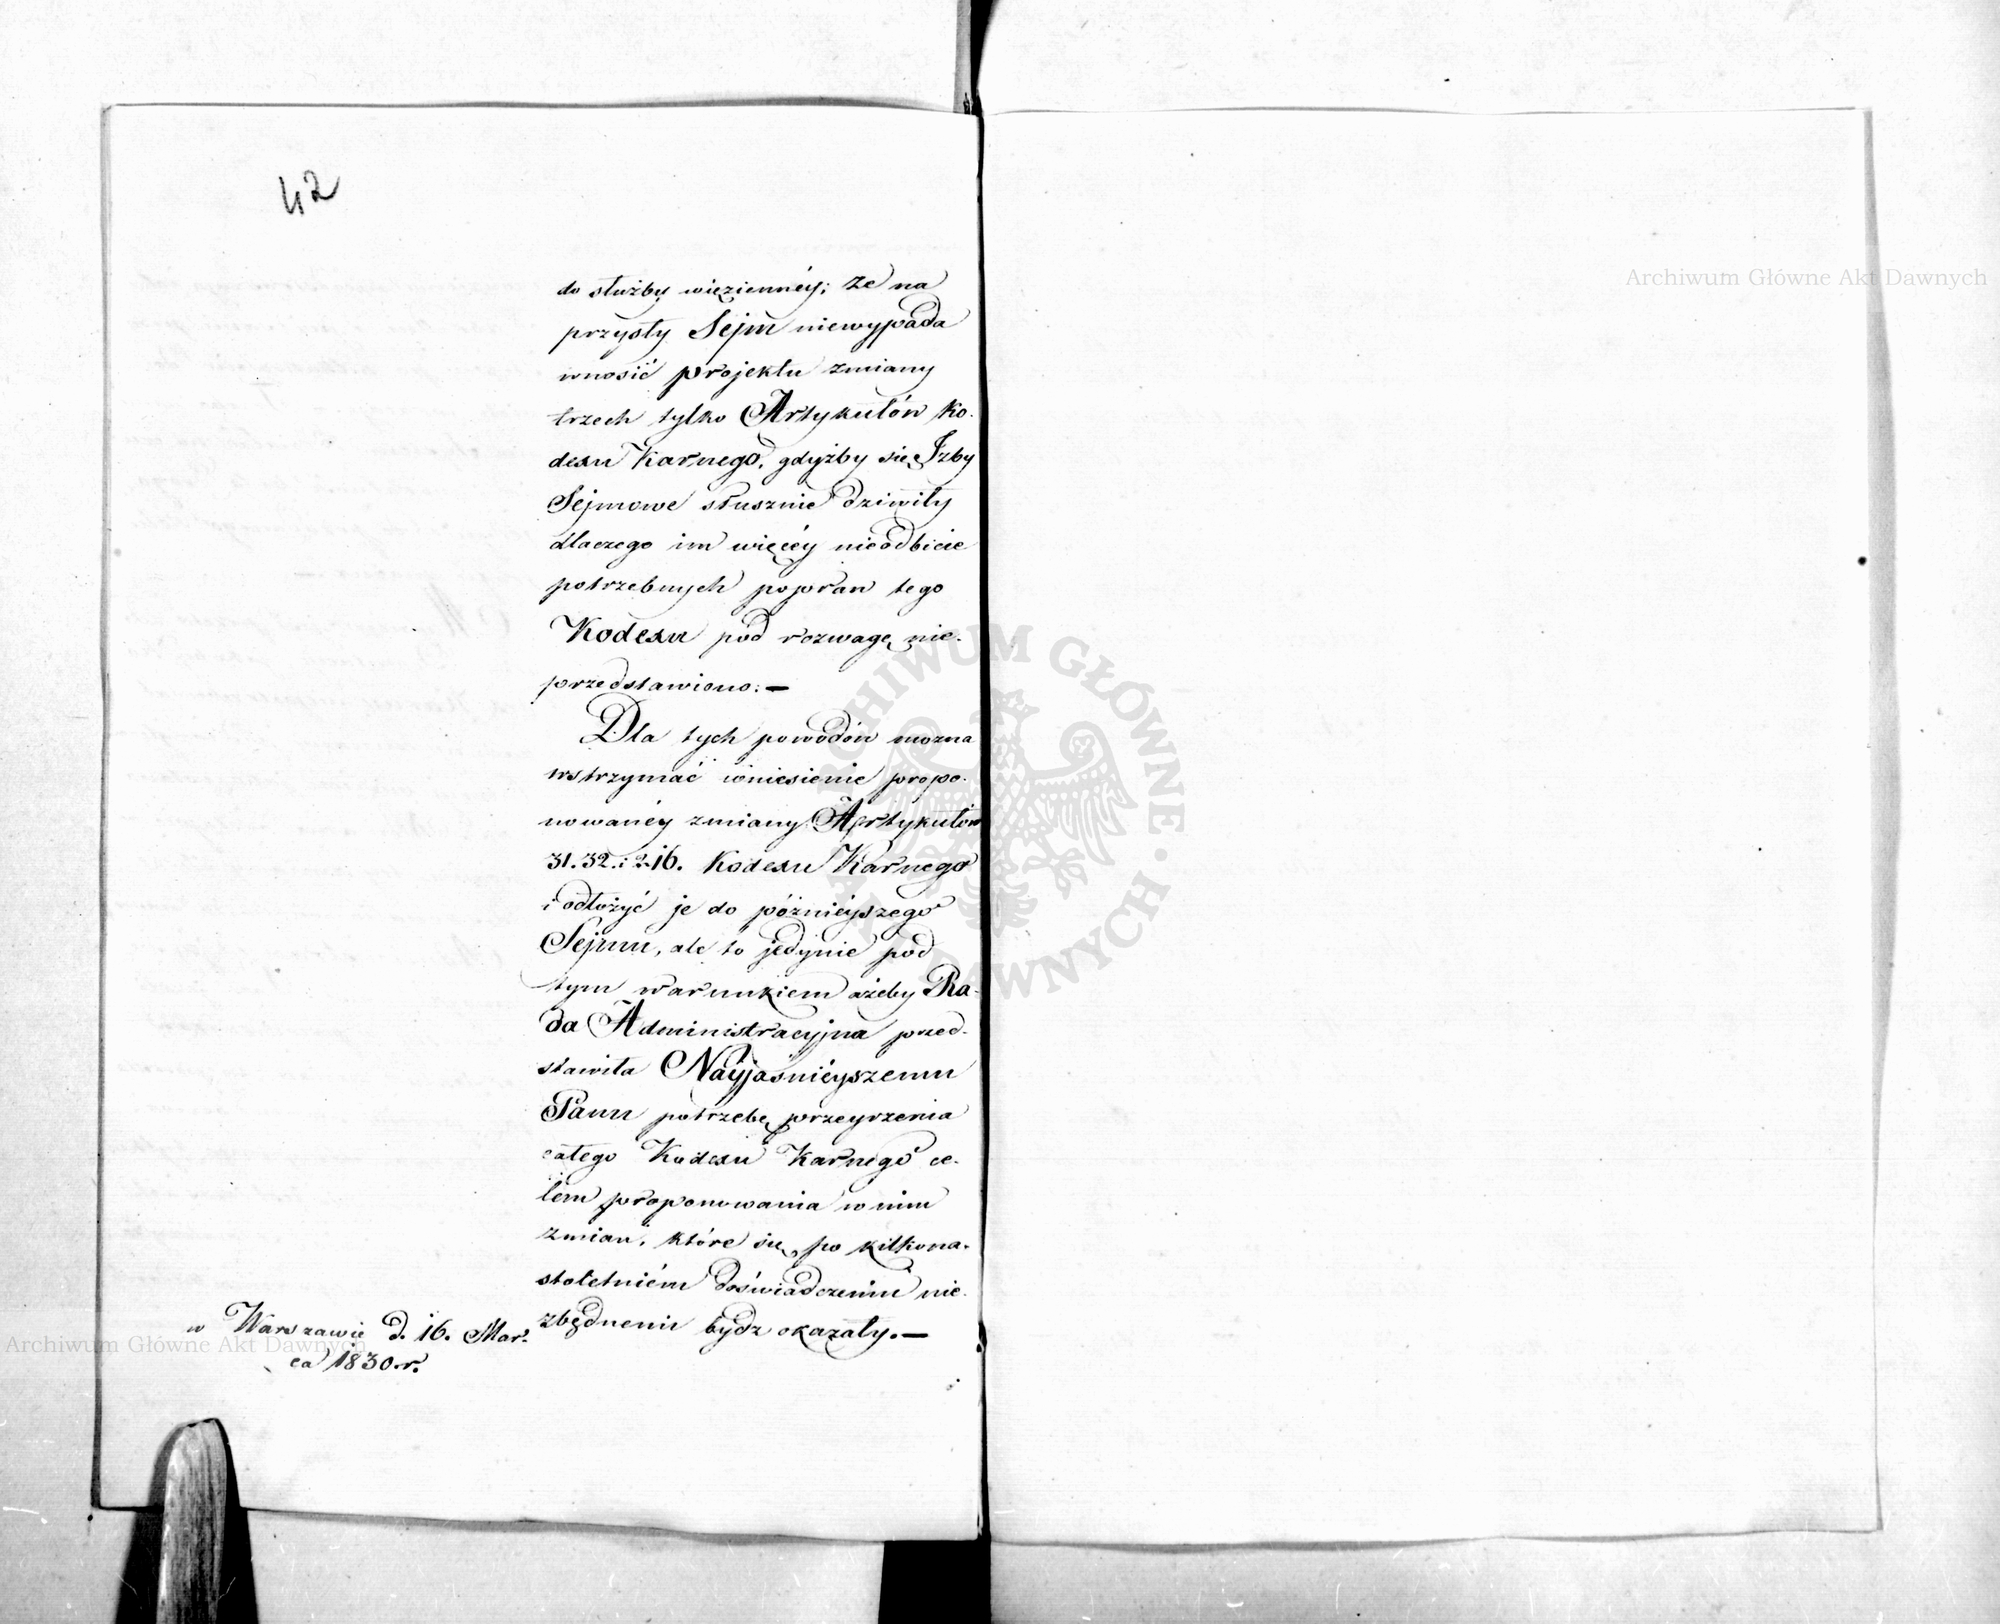 42
do służby więziennéy; że na
przyszły Sejm niewypada
wnosić projektu zmiany
trzech tylko Artykułów Ko-
dexu Karnego, gdyżby się Izby
Sejmowe słusznie dziwiły
dlaczego im więcéy nieodbicie
potrzebnych popraw tego
Kodexu pod rozwagę nie-
przedstawiono.—
Dla tych powodów można
wstrzymać wniesienie propo-
nowanéy zmiany Artykułów
31. 32. i 216. Kodexu Karnego
i odłożyć je do późniéyszego
Sejmu, ale to jedynie pod
tym warunkiem ażeby Ra-
da Administracyjna przed-
stawiła Nayjaśniéyszemu
Panu potrzebę przeyrzenia
całego Kodexu Karnego ce-
lem proponowania w nim
zmian, które się po kilkona-
stoletniém doświadczeniu nie-
zbędnemi bydz okazały.—
w Warszawie d. 16. Mar-
ca 1830. r.
Archiwum Główne Akt Dawnych
Archiwum Główne Akt Dawnych
ARCHIWUM GŁÓWNE AKT DAWNYCH